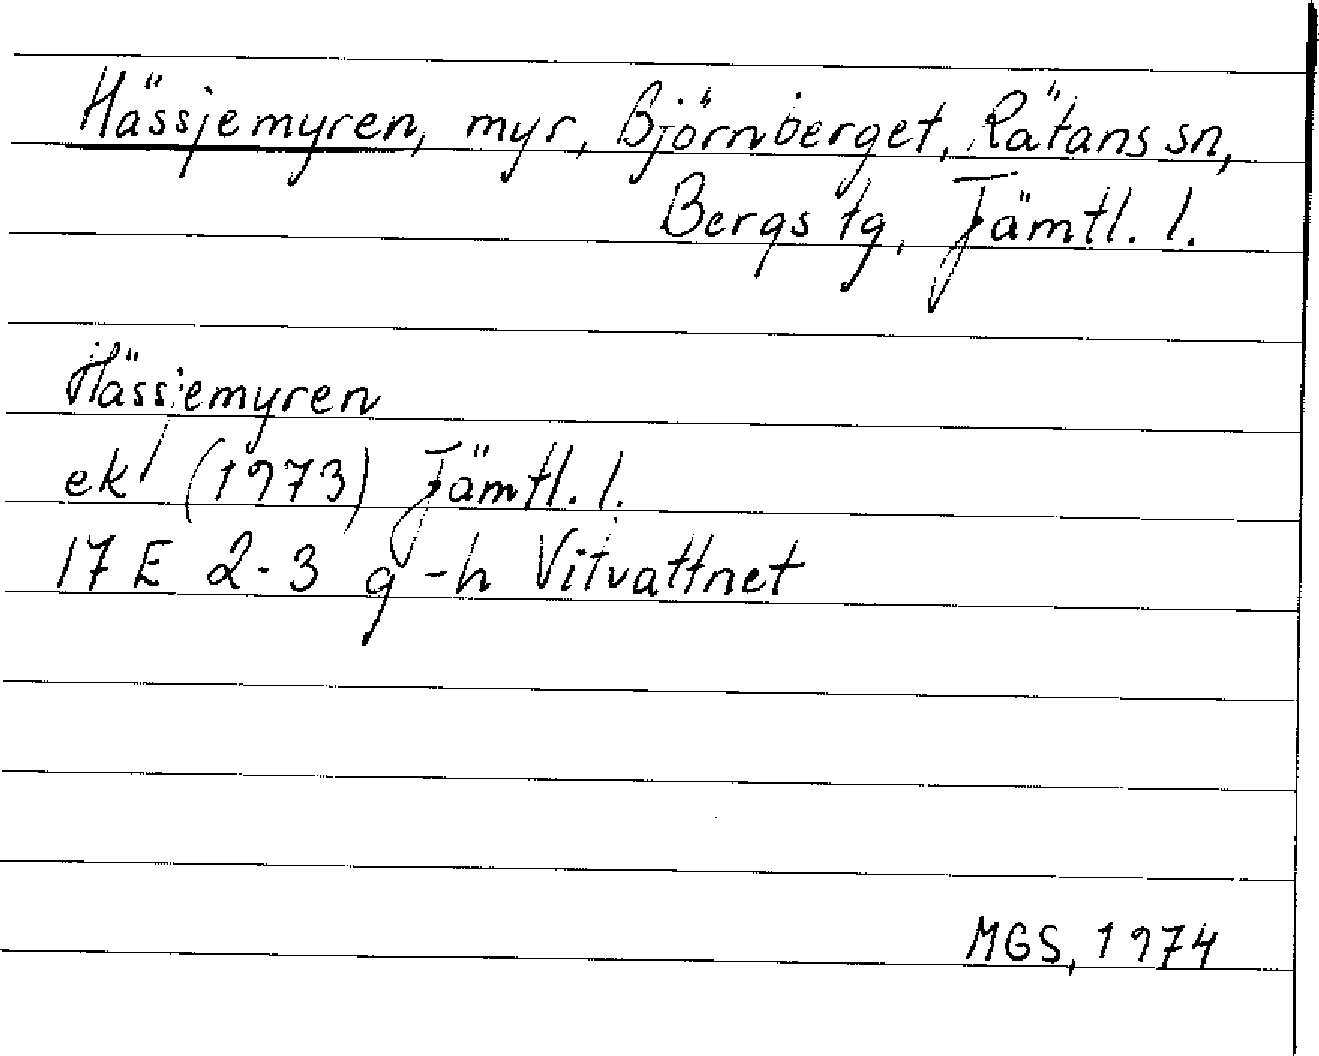 Hässjemyren, myr, Björnberget, Rätans sn,
Bergs tg, Jämtl. l.
Hässjemyren
ek (1973) Jämtl. l.
17 E 2-3 g-h Vitvattnet
MGS, 1974